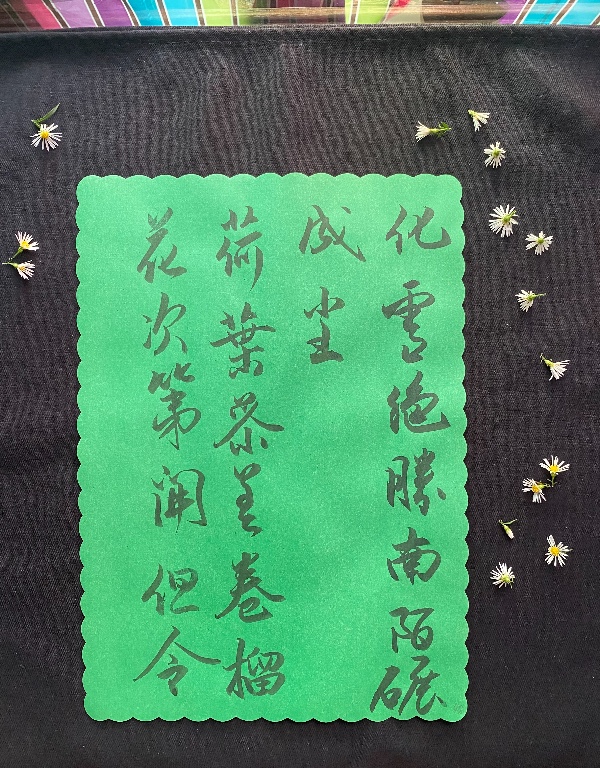 化雪绝勝南陌碾
成尘
荷葉参差卷榴
花次第開但令